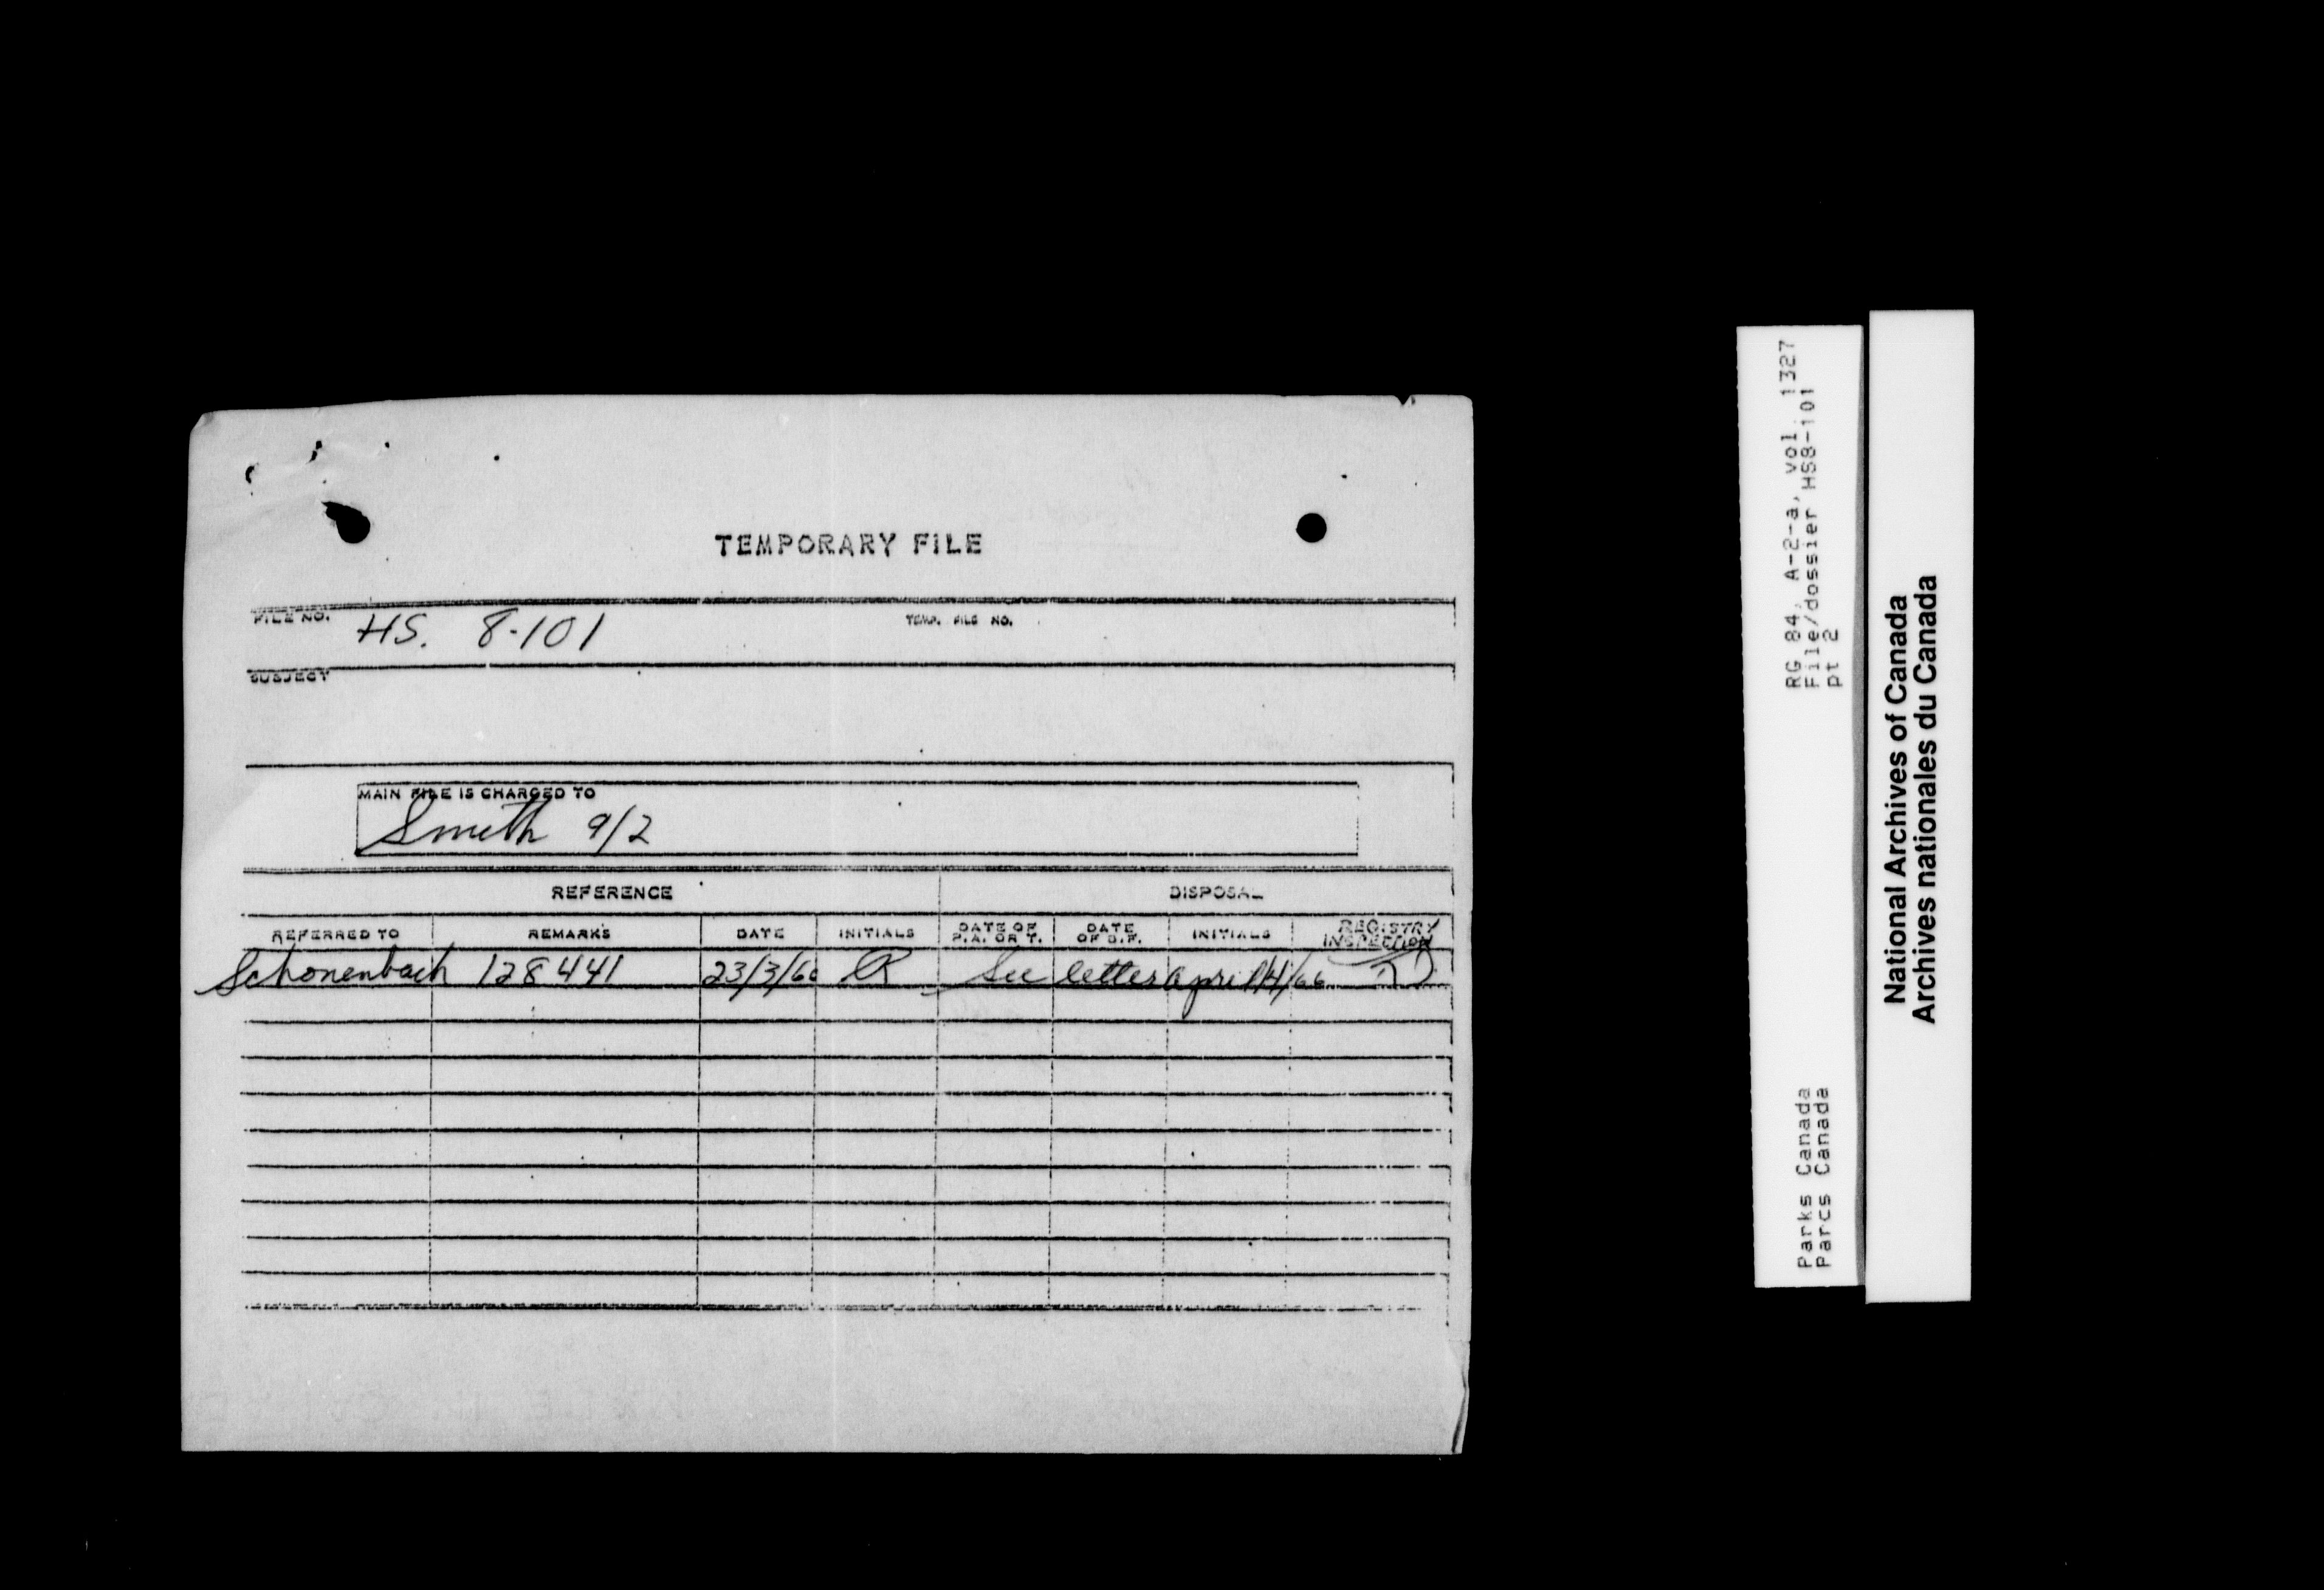 TEMPORARY FILE
FILE NO. HS. 8-101 TEMP. FILE NO.
SUBJECT
MAIN FILE IS CHARGED TO
Smith 9/2
REFERENCE DISPOSAL
REFERRED TO REMARKS DATE INITIALS DATE OF P.A. OR T. DATE OF B.F. INITIALS REGISTRY INSPECTION
Schonenbach 128441 23/3/66 R See letter april 14/66
RG 84, A-2-a, vol. 1327
File/dossier HS8-101
pt 2
Parks Canada
Parcs Canada
National Archives of Canada
Archives nationales du Canada